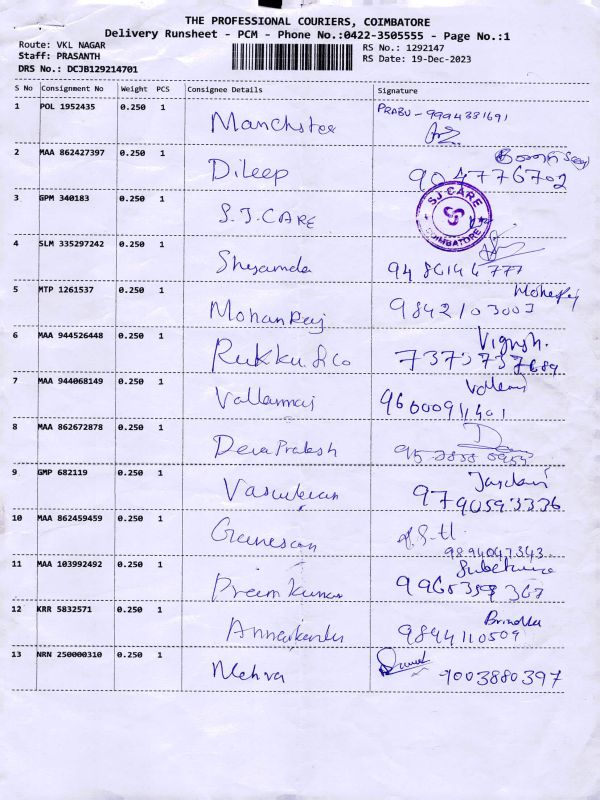 THE PROFESSIONAL COURIERS, COIMBATORE
Delivery Runsheet - PCM - Phone No.:0422-3505555 - Page No.:1
Route: VKL NAGAR
RS No.: 1292147
Staff: PRASANTH
RS Date: 19-Dec-2023
DRS No.: DCJB129214701
S No Consignment No Weight PCS Consignee Details Signature
1 POL 1952435 0.250 1 Manchster PRABU - 9994381691
2 MAA 862427397 0.250 1 Dileep 9047776702
3 GPM 340183 0.250 1 S.J.CARE
SJ CARE
COIMBATORE
4 SLM 335297242 0.250 1 Shyamala
5 MTP 1261537 0.250 1 Mohanraj Mohanraj
9842103003
6 MAA 944526448 0.250 1 Rukku & Co Vignsh.
7373737689
7 MAA 944068149 0.250 1
8 MAA 862672878 0.250 1 Deva Prakash
9 GMP 682119 0.250 1
9790593336
10 MAA 862459459 0.250 1 Ganesan
9894047343
11 MAA 103992492 0.250 1 Prem kumar
12 KRR 5832571 0.250 1 Brindha
9844110509
13 NRN 250000310 0.250 1 Mehra 7003880397